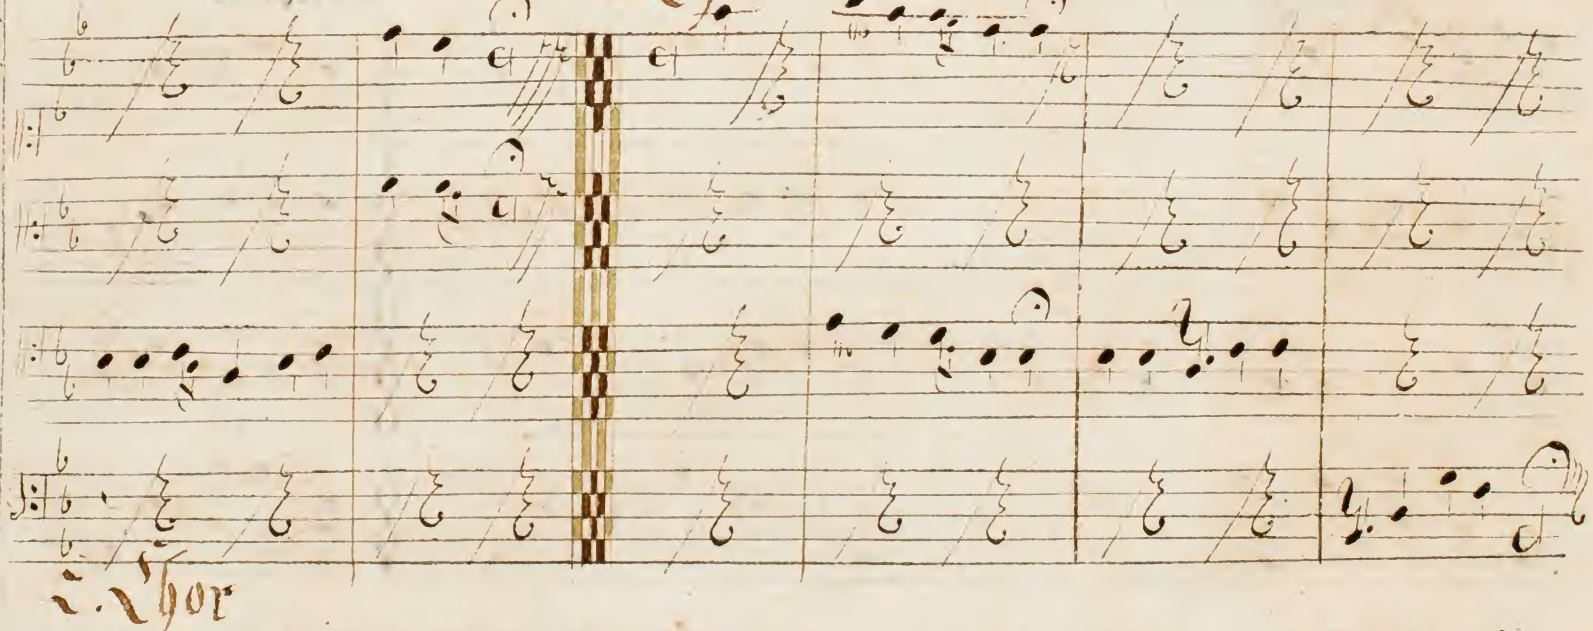 2. Chor